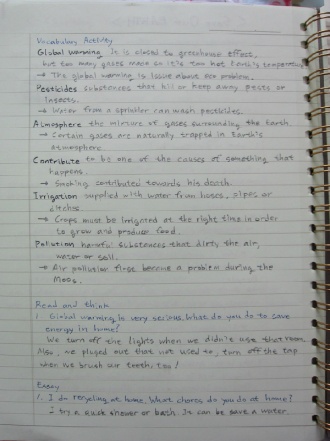 Vocabulary Activity
Global warming It is closed to greenhouse effect,
but too many gases made so it's too hot Earth's temperature
→ The global warming is issue about eco problem.
Pesticides substances that kill or keep away pests or
insects.
→ Water from a sprinkler can wash pesticides.
Atmosphere the mixture of gases surrounding the Earth.
→ Certain gases are naturally trapped in Earth's
atmosphere
Contribute to be one of the causes of something that
happens.
→ Smoking contributed towards his death.
Irrigation supplied with water from hoses, pipes or
ditches
→ Crops must be irrigated at the right time in order
to grow and produce food.
Pollution harmful substances that dirty the air,
water or soil.
→ Air pollution first become a problem during the
Read and think
1. Global warming is very serious. What do you do to save
energy in home?
We turn off the lights when we didn't use that room.
Also, we pluged out that not used to, turn off the tap
when we brush our teeth, too!
Essay
1. I do recycling at home. What chores do you do at home?
I try a quick shower or bath. It can be save a water.